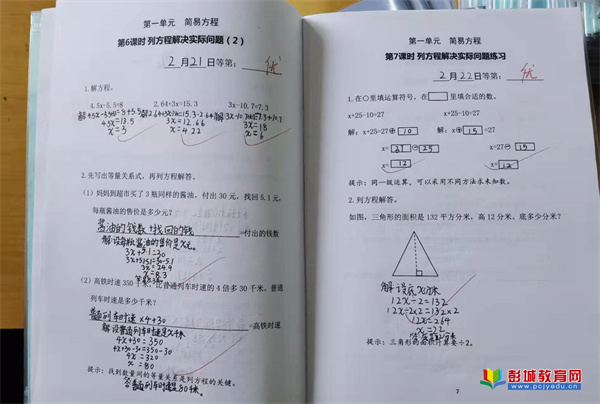 第一单元 简易方程
第6课时 列方程解决实际问题(2)
2月21日等第: 优
1.解方程。
4.5x-5.5=8 2.64+3x=15.3 3x-10.7=7.3
4.5x=13.5 3x=12.66 3x=18
x=3 x=4.22 x=6
2.先写出等量关系式,再列方程解答。
(1)妈妈到超市买了3瓶同样的酱油,付出30元,找回5.1元,
每瓶酱油的售价是多少元?
酱油的钱数+找回的钱=付出的钱数
解:设每瓶酱油的售价是x元。
3x+5.1=30
3x+5.1-5.1=30-5.1
3x=24.9
x=8.3
(2)高铁时速350千米,比普通列车时速的4倍多30千米。普通
列车时速是多少千米?
普通列车时速×4+30=高铁时速
解:设普通列车时速是x千米
4x+30=350
4x+30-30=350-30
4x=320
x=80
提示:找到数量间的等量关系是列方程的关键。
答:普通列车时速是80千米。
第一单元 简易方程
第7课时 列方程解决实际问题练习
2月22日等第: 优
1.在○里填运算符号,在□里填合适的数。
x+25-10=27 x+25-10=27
解:x+25=27+10 解:x+15=27
x=37-25 x=27-15
x=12 x=12
提示:同一级运算,可以采用不同方法求未知数。
2.列方程解答。
如图,三角形的面积是132平方分米,高12分米,底多少分米?
解:设底x分米
12x÷2=132
12x÷2×2=132×2
12x=264
x=22
提示:三角形的面积计算要÷2。
7
彭城教育网
www.pcjyedu.cn